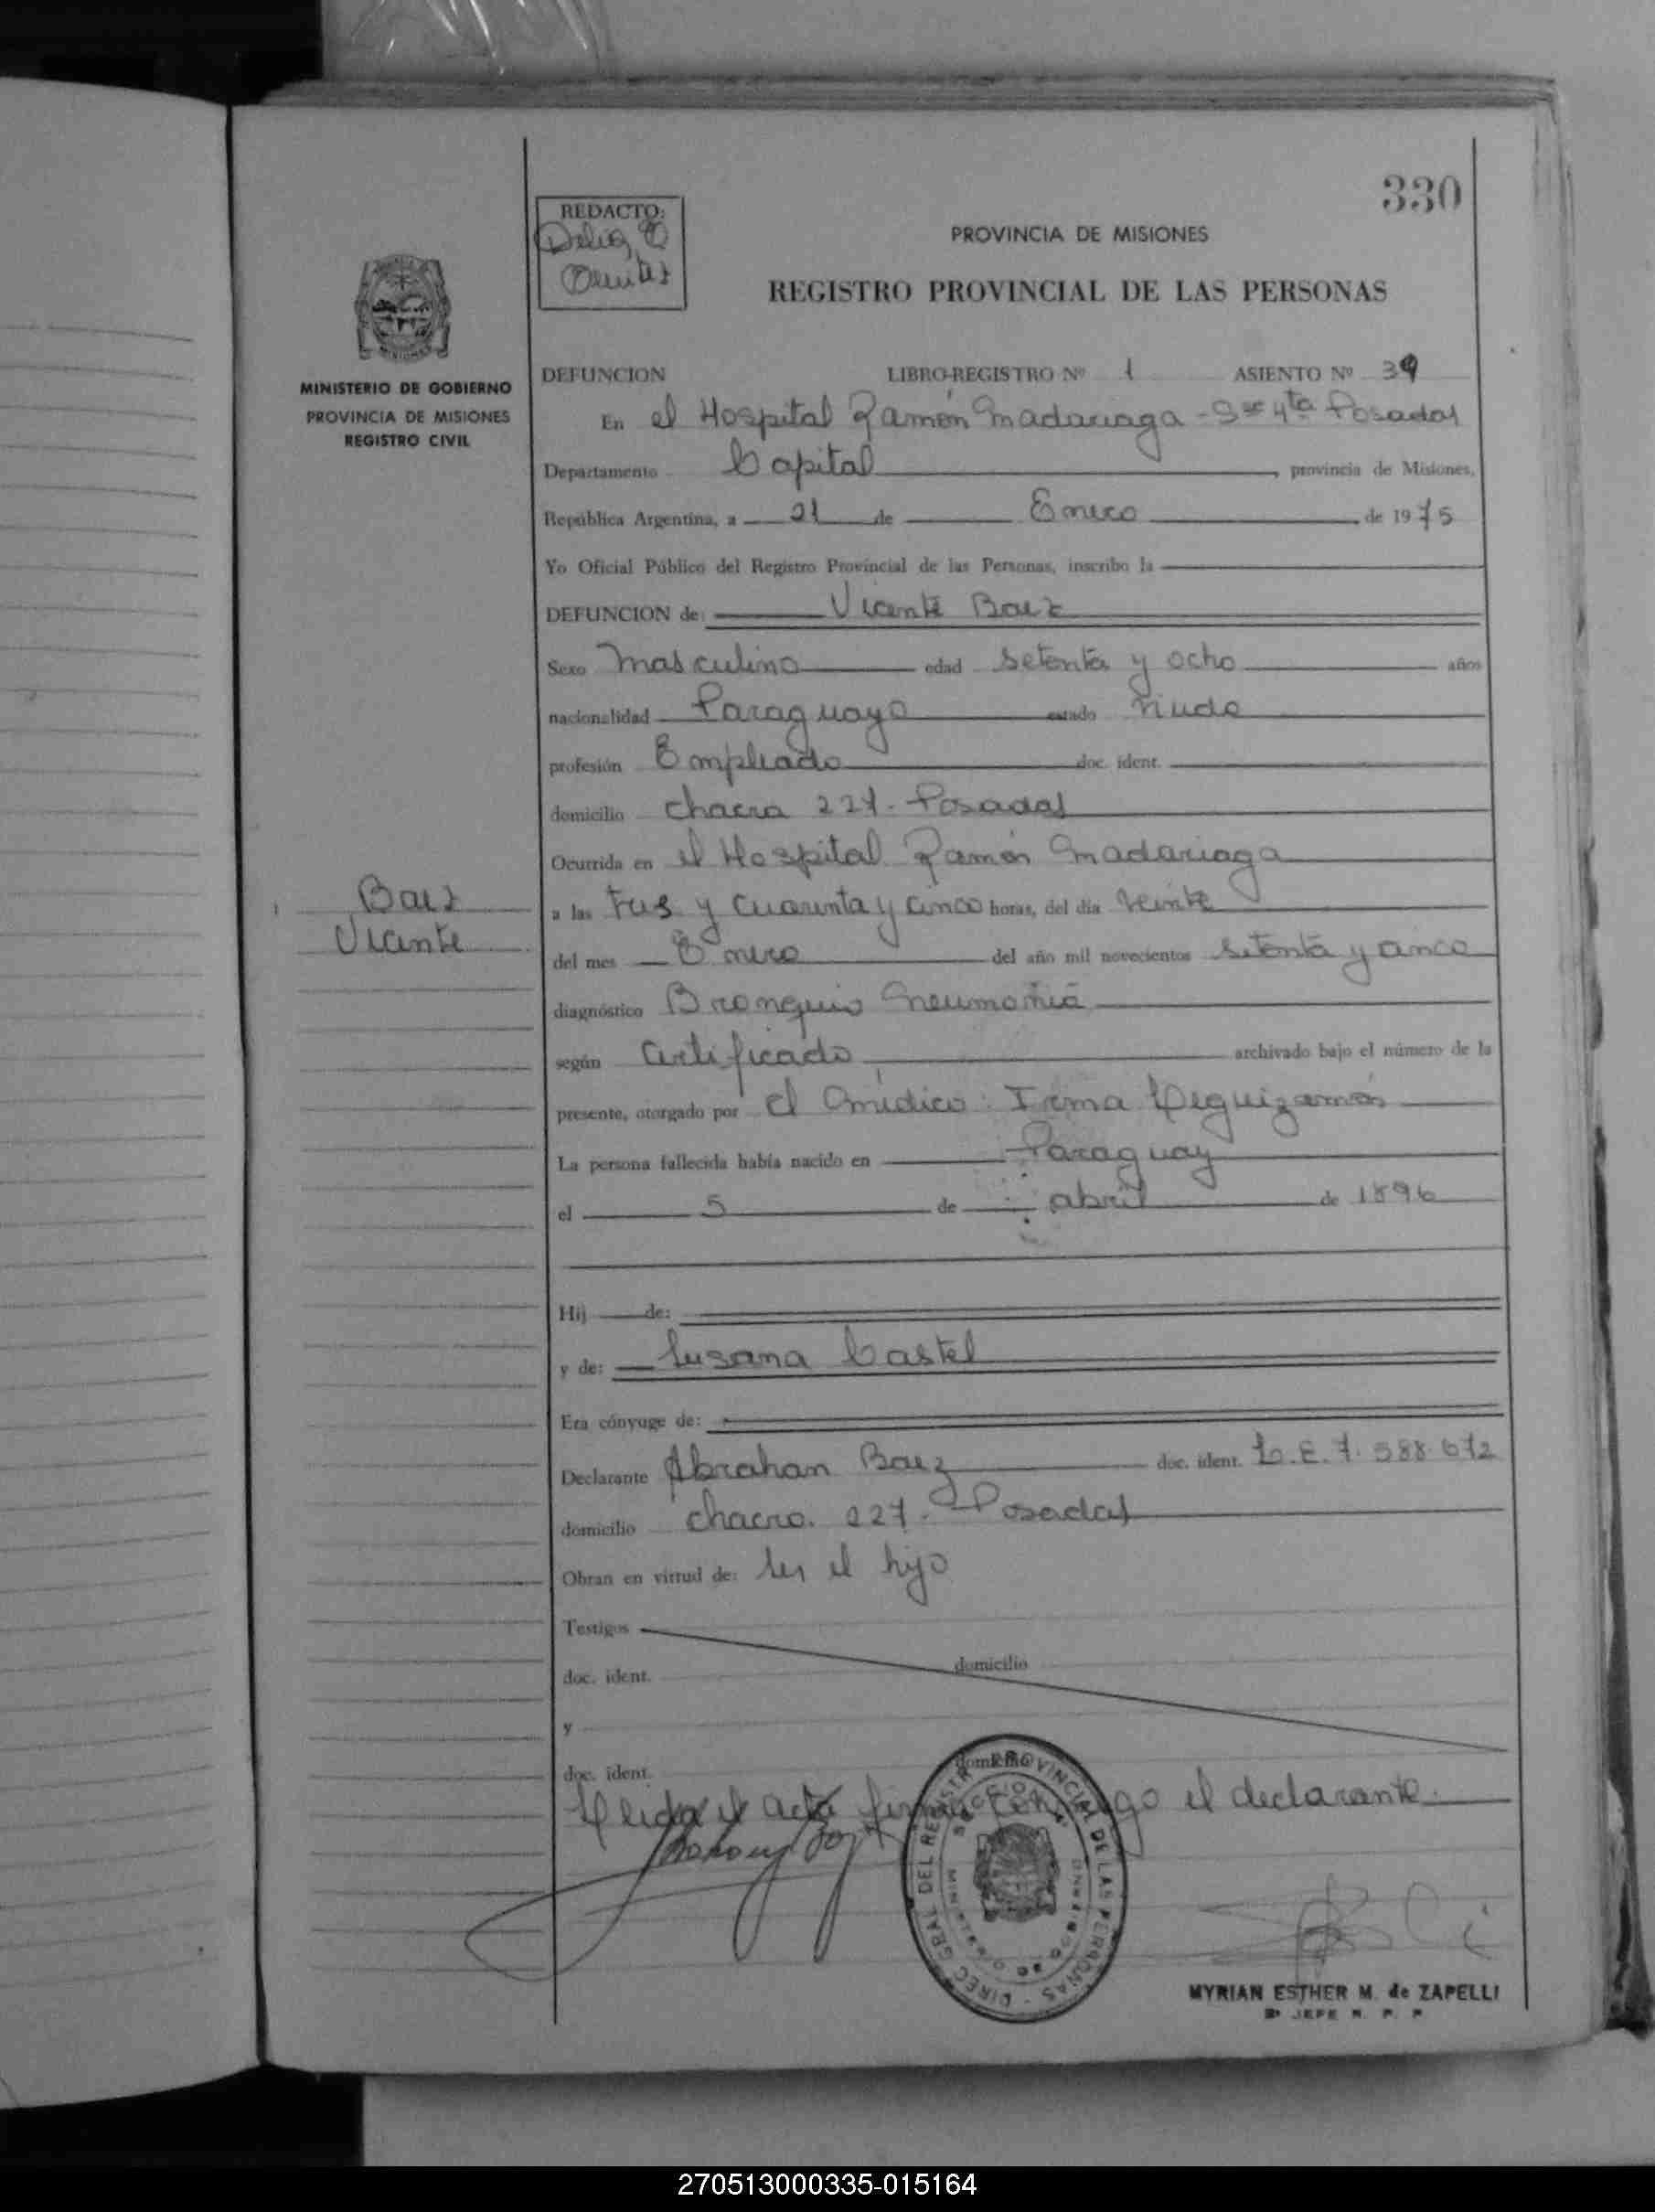 330
REDACTO:
Delia E
Benitez
PROVINCIA DE MISIONES
REGISTRO PROVINCIAL DE LAS PERSONAS
MINISTERIO DE GOBIERNO
PROVINCIA DE MISIONES
REGISTRO CIVIL
DEFUNCION LIBRO-REGISTRO Nº 1 ASIENTO Nº 39
En el Hospital Ramón Madariaga - Sec 4ta Posadas
Departamento Capital, provincia de Misiones,
República Argentina, a 21 de Enero de 1975
Yo Oficial Público del Registro Provincial de las Personas, inscribo la
DEFUNCION de: Vicente Baez
Sexo Masculino edad setenta y ocho años
nacionalidad Paraguaya estado Viudo
profesión Empleado doc. ident.
domicilio chacra 227 - Posadas
Ocurrida en el Hospital Ramón Madariaga
Baez
Vicente
a las tres y cuarenta y cinco horas, del día veinte
del mes Enero del año mil novecientos setenta y cinco
diagnóstico Bronquio Neumonia
según Certificado archivado bajo el número de la
presente, otorgado por el Médico: Irma Leguizamón
La persona fallecida había nacido en Paraguay
el 5 de abril de 1896
Hij de:
y de: Susana Castel
Era cónyuge de:
Declarante Abrahan Baez doc. ident. L.E. 7.588.672
domicilio chacra. 227. Posadas
Obran en virtud de: ser el hijo
Testigos
doc. ident. domicilio
y
doc. ident. domicilio
Leida el acta firma conmigo el declarante.
DIREC. GRAL DEL REGISTRO PROVINCIAL DE LAS PERSONAS
MYRIAN ESTHER M. de ZAPELLI
JEFE R. P. P.
270513000335-015164